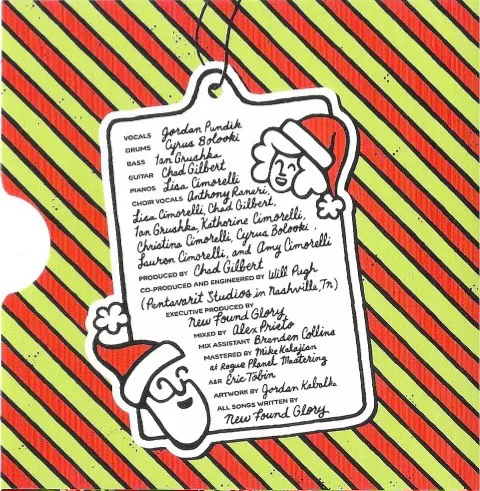 VOCALS Jordan Pundik
DRUMS Cyrus Bolooki
BASS Ian Grushka
GUITAR Chad Gilbert
PIANOS Lisa Cimorelli
CHOIR VOCALS Anthony Raneri,
Lisa Cimorelli, Chad Gilbert,
Ian Grushka, Katherine Cimorelli,
Christina Cimorelli, Cyrus Bolooki,
Lauren Cimorelli, and Amy Cimorelli
PRODUCED BY Chad Gilbert
CO-PRODUCED AND ENGINEERED BY Will Pugh
(Pentavarit Studios in Nashville, Tn)
EXECUTIVE PRODUCED BY
New Found Glory
MIXED BY Alex Prieto
MIX ASSISTANT Brenden Collins
MASTERED BY Mike Kalajian
at Rogue Planet Mastering
A&R Eric Tobin
ARTWORK BY Jordan Kabalka
ALL SONGS WRITTEN BY
New Found Glory